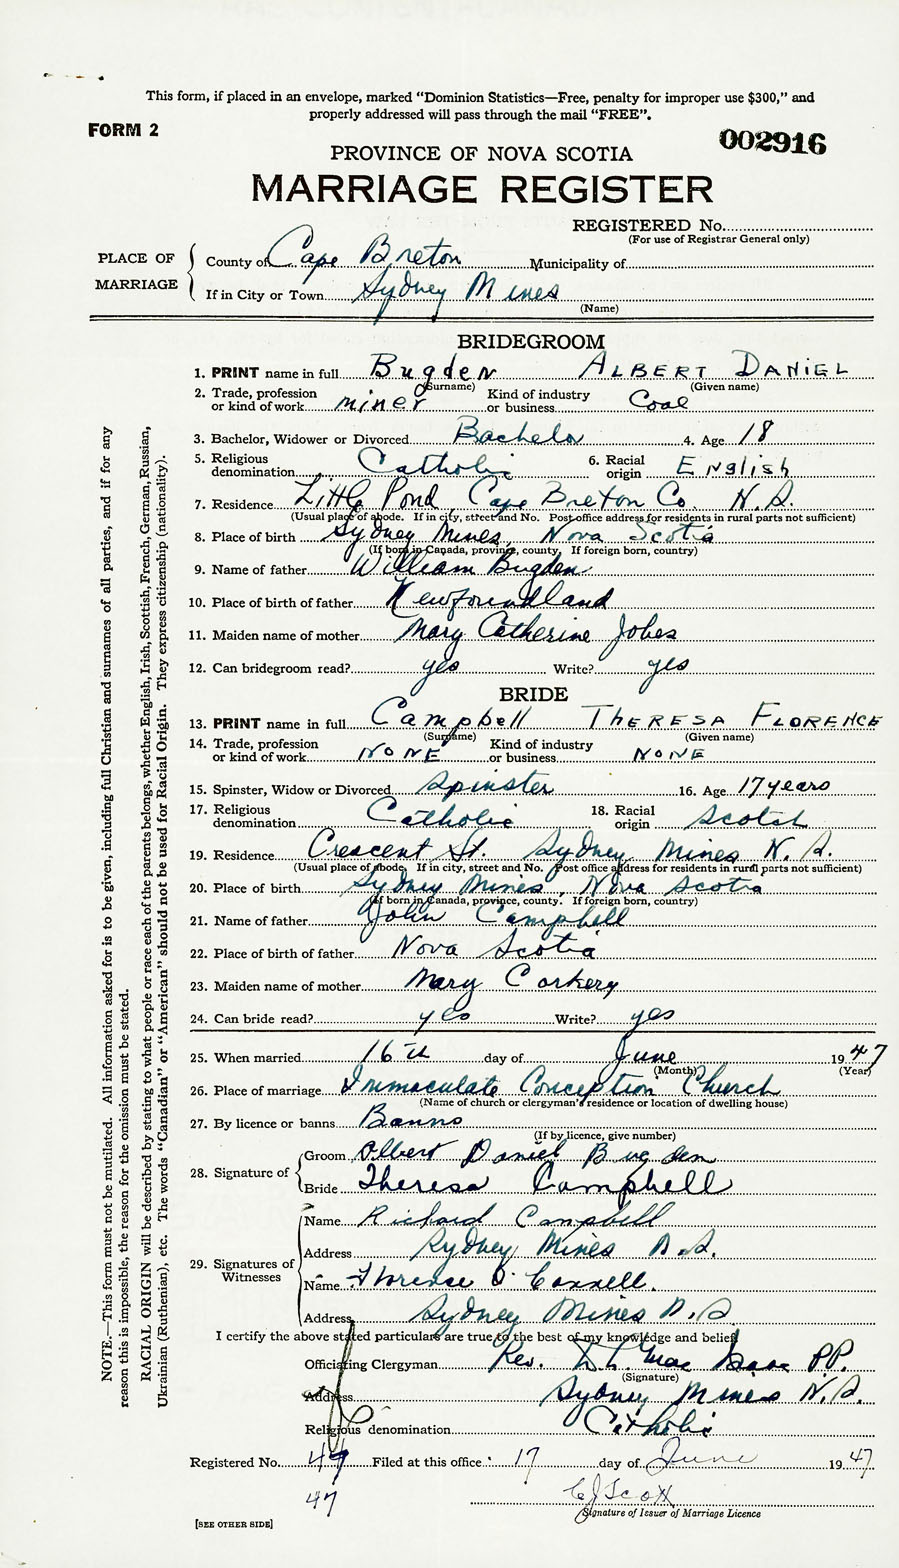 This form, if placed in an envelope, marked “Dominion Statistics—Free, penalty for improper use $300,” and
properly addressed will pass through the mail “FREE”.
FORM 2
002916
PROVINCE OF NOVA SCOTIA
MARRIAGE REGISTER
REGISTERED No.
(For use of Registrar General only)
PLACE OF MARRIAGE
County of Cape Breton Municipality of
If in City or Town Sydney Mines
(Name)
BRIDEGROOM
1. PRINT name in full Bugden ALBERT DANIEL
(Surname) (Given name)
2. Trade, profession or kind of work miner Kind of industry or business Coal
3. Bachelor, Widower or Divorced Bachelor 4. Age 18
5. Religious denomination Catholic 6. Racial origin English
7. Residence Little Pond, Cape Breton Co. N.S.
(Usual place of abode. If in city, street and No. Post office address for residents in rural parts not sufficient)
8. Place of birth Sydney Mines, Nova Scotia
(If born in Canada, province, county. If foreign born, country)
9. Name of father William Bugden
10. Place of birth of father Newfoundland
11. Maiden name of mother Mary Catherine
12. Can bridegroom read? yes Write? yes
BRIDE
13. PRINT name in full Campbell THERESA FLORENCE
(Surname) (Given name)
14. Trade, profession or kind of work NONE Kind of industry or business NONE
15. Spinster, Widow or Divorced Spinster 16. Age 17 years
17. Religious denomination Catholic 18. Racial origin Scotch
19. Residence Crescent St. Sydney Mines N.S.
(Usual place of abode. If in city, street and No. Post office address for residents in rural parts not sufficient)
20. Place of birth Sydney Mines, Nova Scotia
(If born in Canada, province, county. If foreign born, country)
21. Name of father John Campbell
22. Place of birth of father Nova Scotia
23. Maiden name of mother Mary Corkery
24. Can bride read? yes Write? yes
25. When married 16th day of June 1947
(Month) (Year)
26. Place of marriage Immaculate Conception Church
(Name of church or clergyman's residence or location of dwelling house)
27. By licence or banns Banns
(If by licence, give number)
28. Signature of
Groom Albert Daniel Bugden
Bride Theresa Campbell
29. Signatures of Witnesses
Name Richard Campbell
Address Sydney Mines N.S.
Name Florence O'Connell.
Address Sydney Mines N.S
I certify the above stated particulars are true to the best of my knowledge and belief
Officiating Clergyman Rev. Mac Isaac P.P.
(Signature)
Address Sydney Mines N.S.
Religious denomination Catholic
Registered No. 47 Filed at this office 17 day of June 1947
47
CJ Scott
Signature of Issuer of Marriage Licence
[SEE OTHER SIDE]
NOTE.—This form must not be mutilated. All information asked for is to be given, including full Christian and surnames of all parties, and if for any
reason this is impossible, the reason for the omission must be stated.
RACIAL ORIGIN will be described by stating to what people or race each of the parents belongs, whether English, Irish, Scottish, French, German, Russian,
Ukrainian (Ruthenian), etc. The words “Canadian” or “American” should not be used for Racial Origin. They express citizenship (nationality).